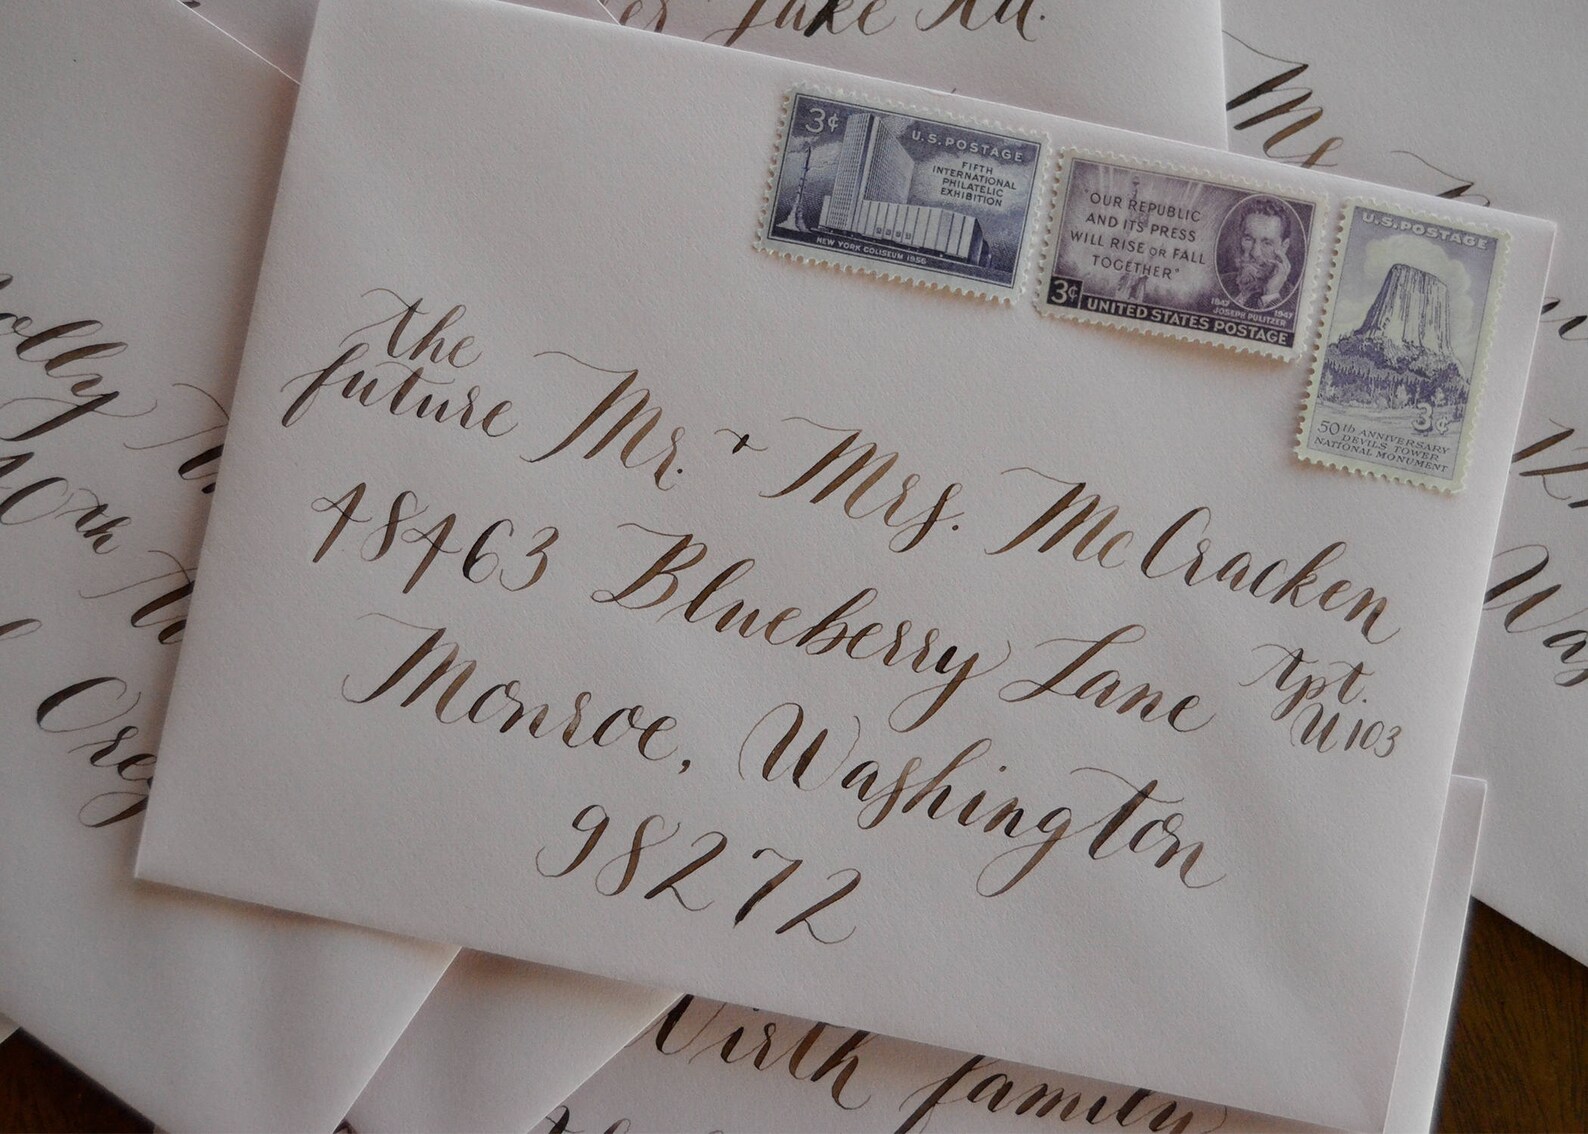 er Lake Rd.
3¢
U.S. POSTAGE
FIFTH
INTERNATIONAL
PHILATELIC
EXHIBITION
NEW YORK COLISEUM 1956
"OUR REPUBLIC
AND ITS PRESS
WILL RISE OR FALL
TOGETHER"
3¢
1847
1947
JOSEPH PULITZER
UNITED STATES POSTAGE
U.S. POSTAGE
3¢
50th ANNIVERSARY
DEVILS TOWER
NATIONAL MONUMENT
the
future Mr. + Mrs. McCracken
48463 Blueberry Lane Apt.
U103
Monroe, Washington
98272
olly
40th
Wirth family